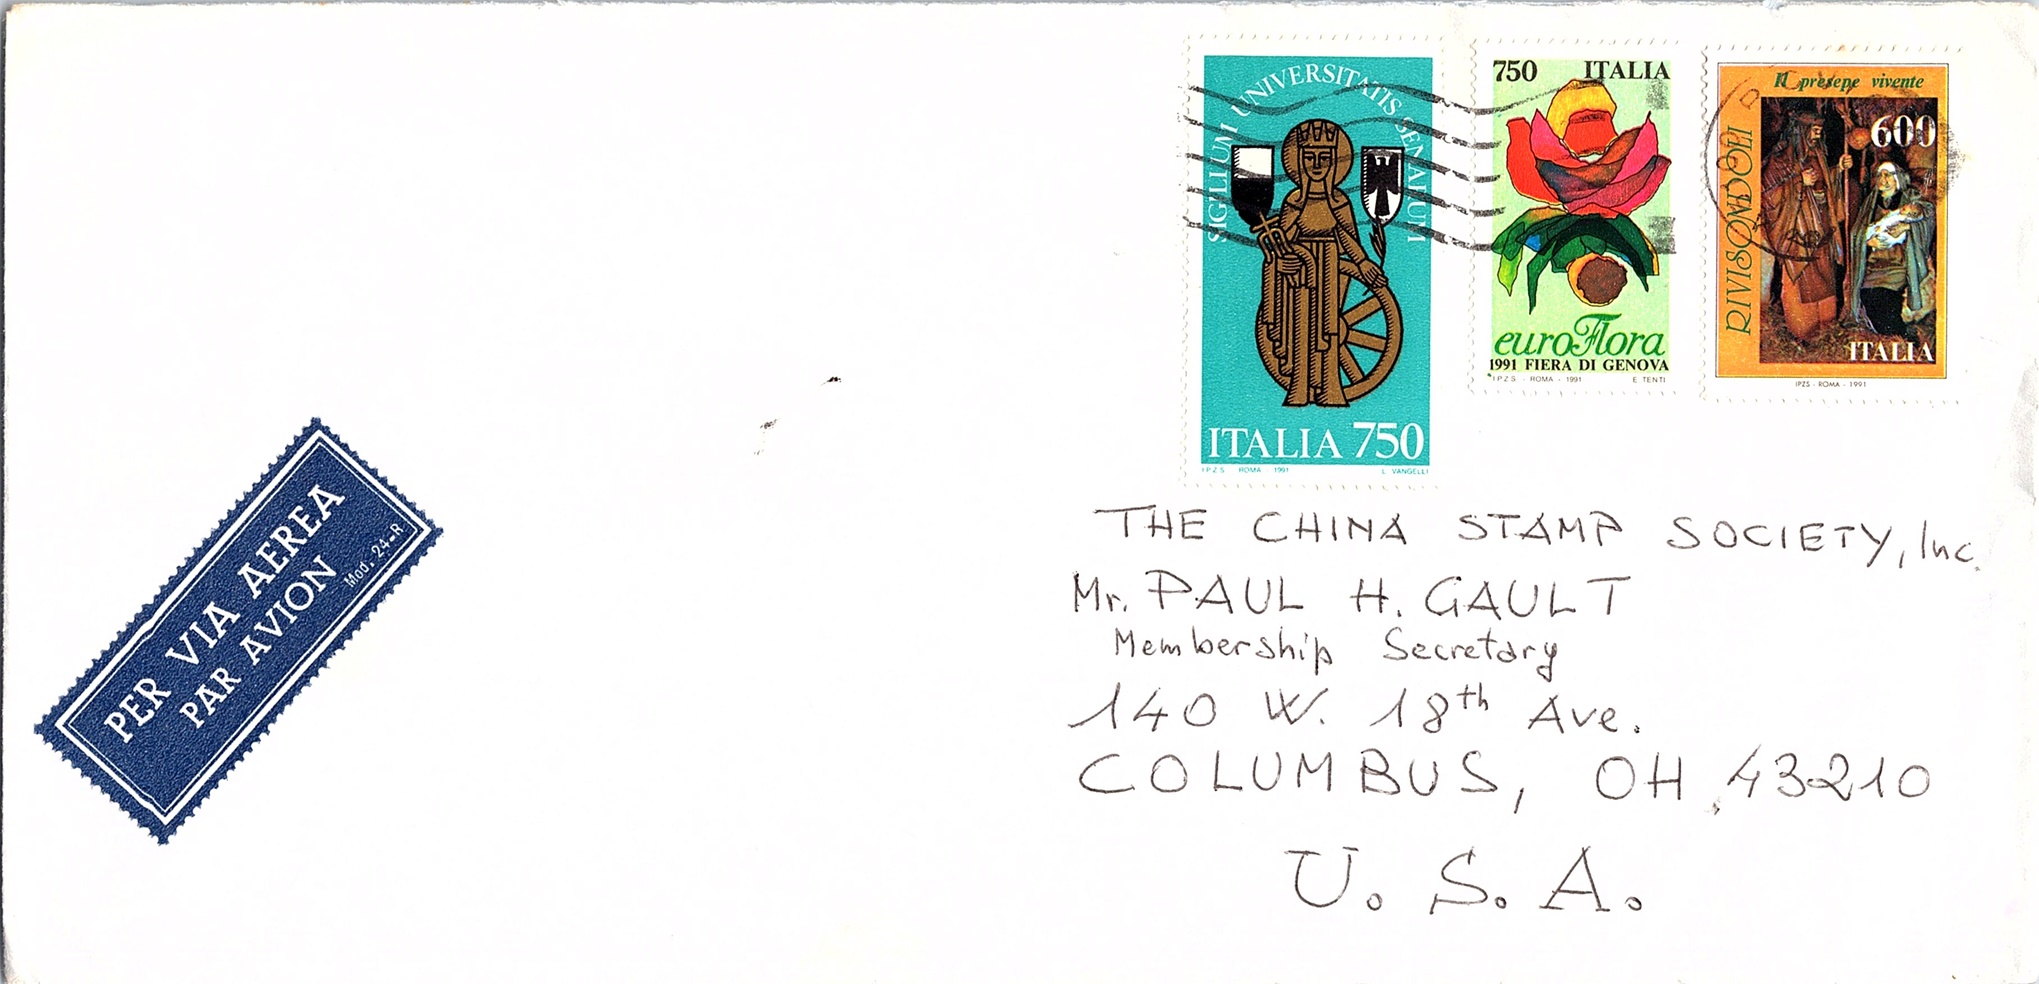 SIGILLUM UNIVERSITATIS SENARUM
ITALIA 750
I.P.Z.S. ROMA - 1991 L. VANGELLI
750 ITALIA
euroFlora
1991 FIERA DI GENOVA
I.P.Z.S. - ROMA - 1991 E. TENTI
Il presepe vivente
RIVISONDOLI
600
ITALIA
IPZS - ROMA - 1991
PER VIA AEREA
PAR AVION
Mod. 24-R
THE CHINA STAMP SOCIETY, Inc.
Mr. PAUL H. GAULT
Membership Secretary
140 W. 18th Ave.
COLUMBUS, OH, 43210
U. S. A.